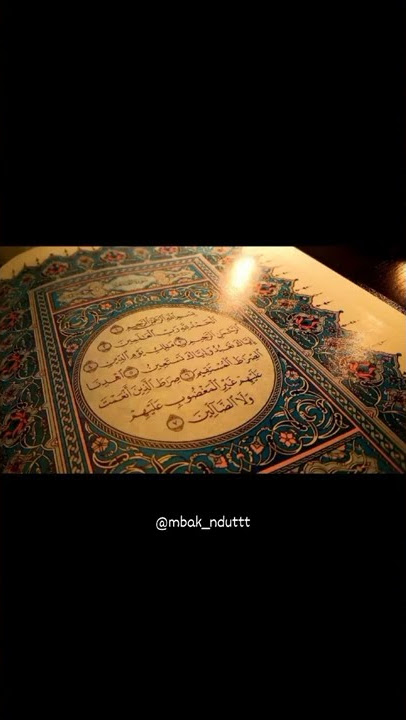 بِسْمِ اللَّهِ الرَّحْمَٰنِ الرَّحِيمِ ١
الْحَمْدُ لِلَّهِ رَبِّ الْعَالَمِينَ ٢
الرَّحْمَٰنِ الرَّحِيمِ ٣ مَالِكِ يَوْمِ الدِّينِ ٤
إِيَّاكَ نَعْبُدُ وَإِيَّاكَ نَسْتَعِينُ ٥ اهْدِنَا
الصِّرَاطَ الْمُسْتَقِيمَ ٦ صِرَاطَ الَّذِينَ أَنْعَمْتَ
عَلَيْهِمْ غَيْرِ الْمَغْضُوبِ عَلَيْهِمْ
وَلَا الضَّالِّينَ ٧
@mbak_nduttt